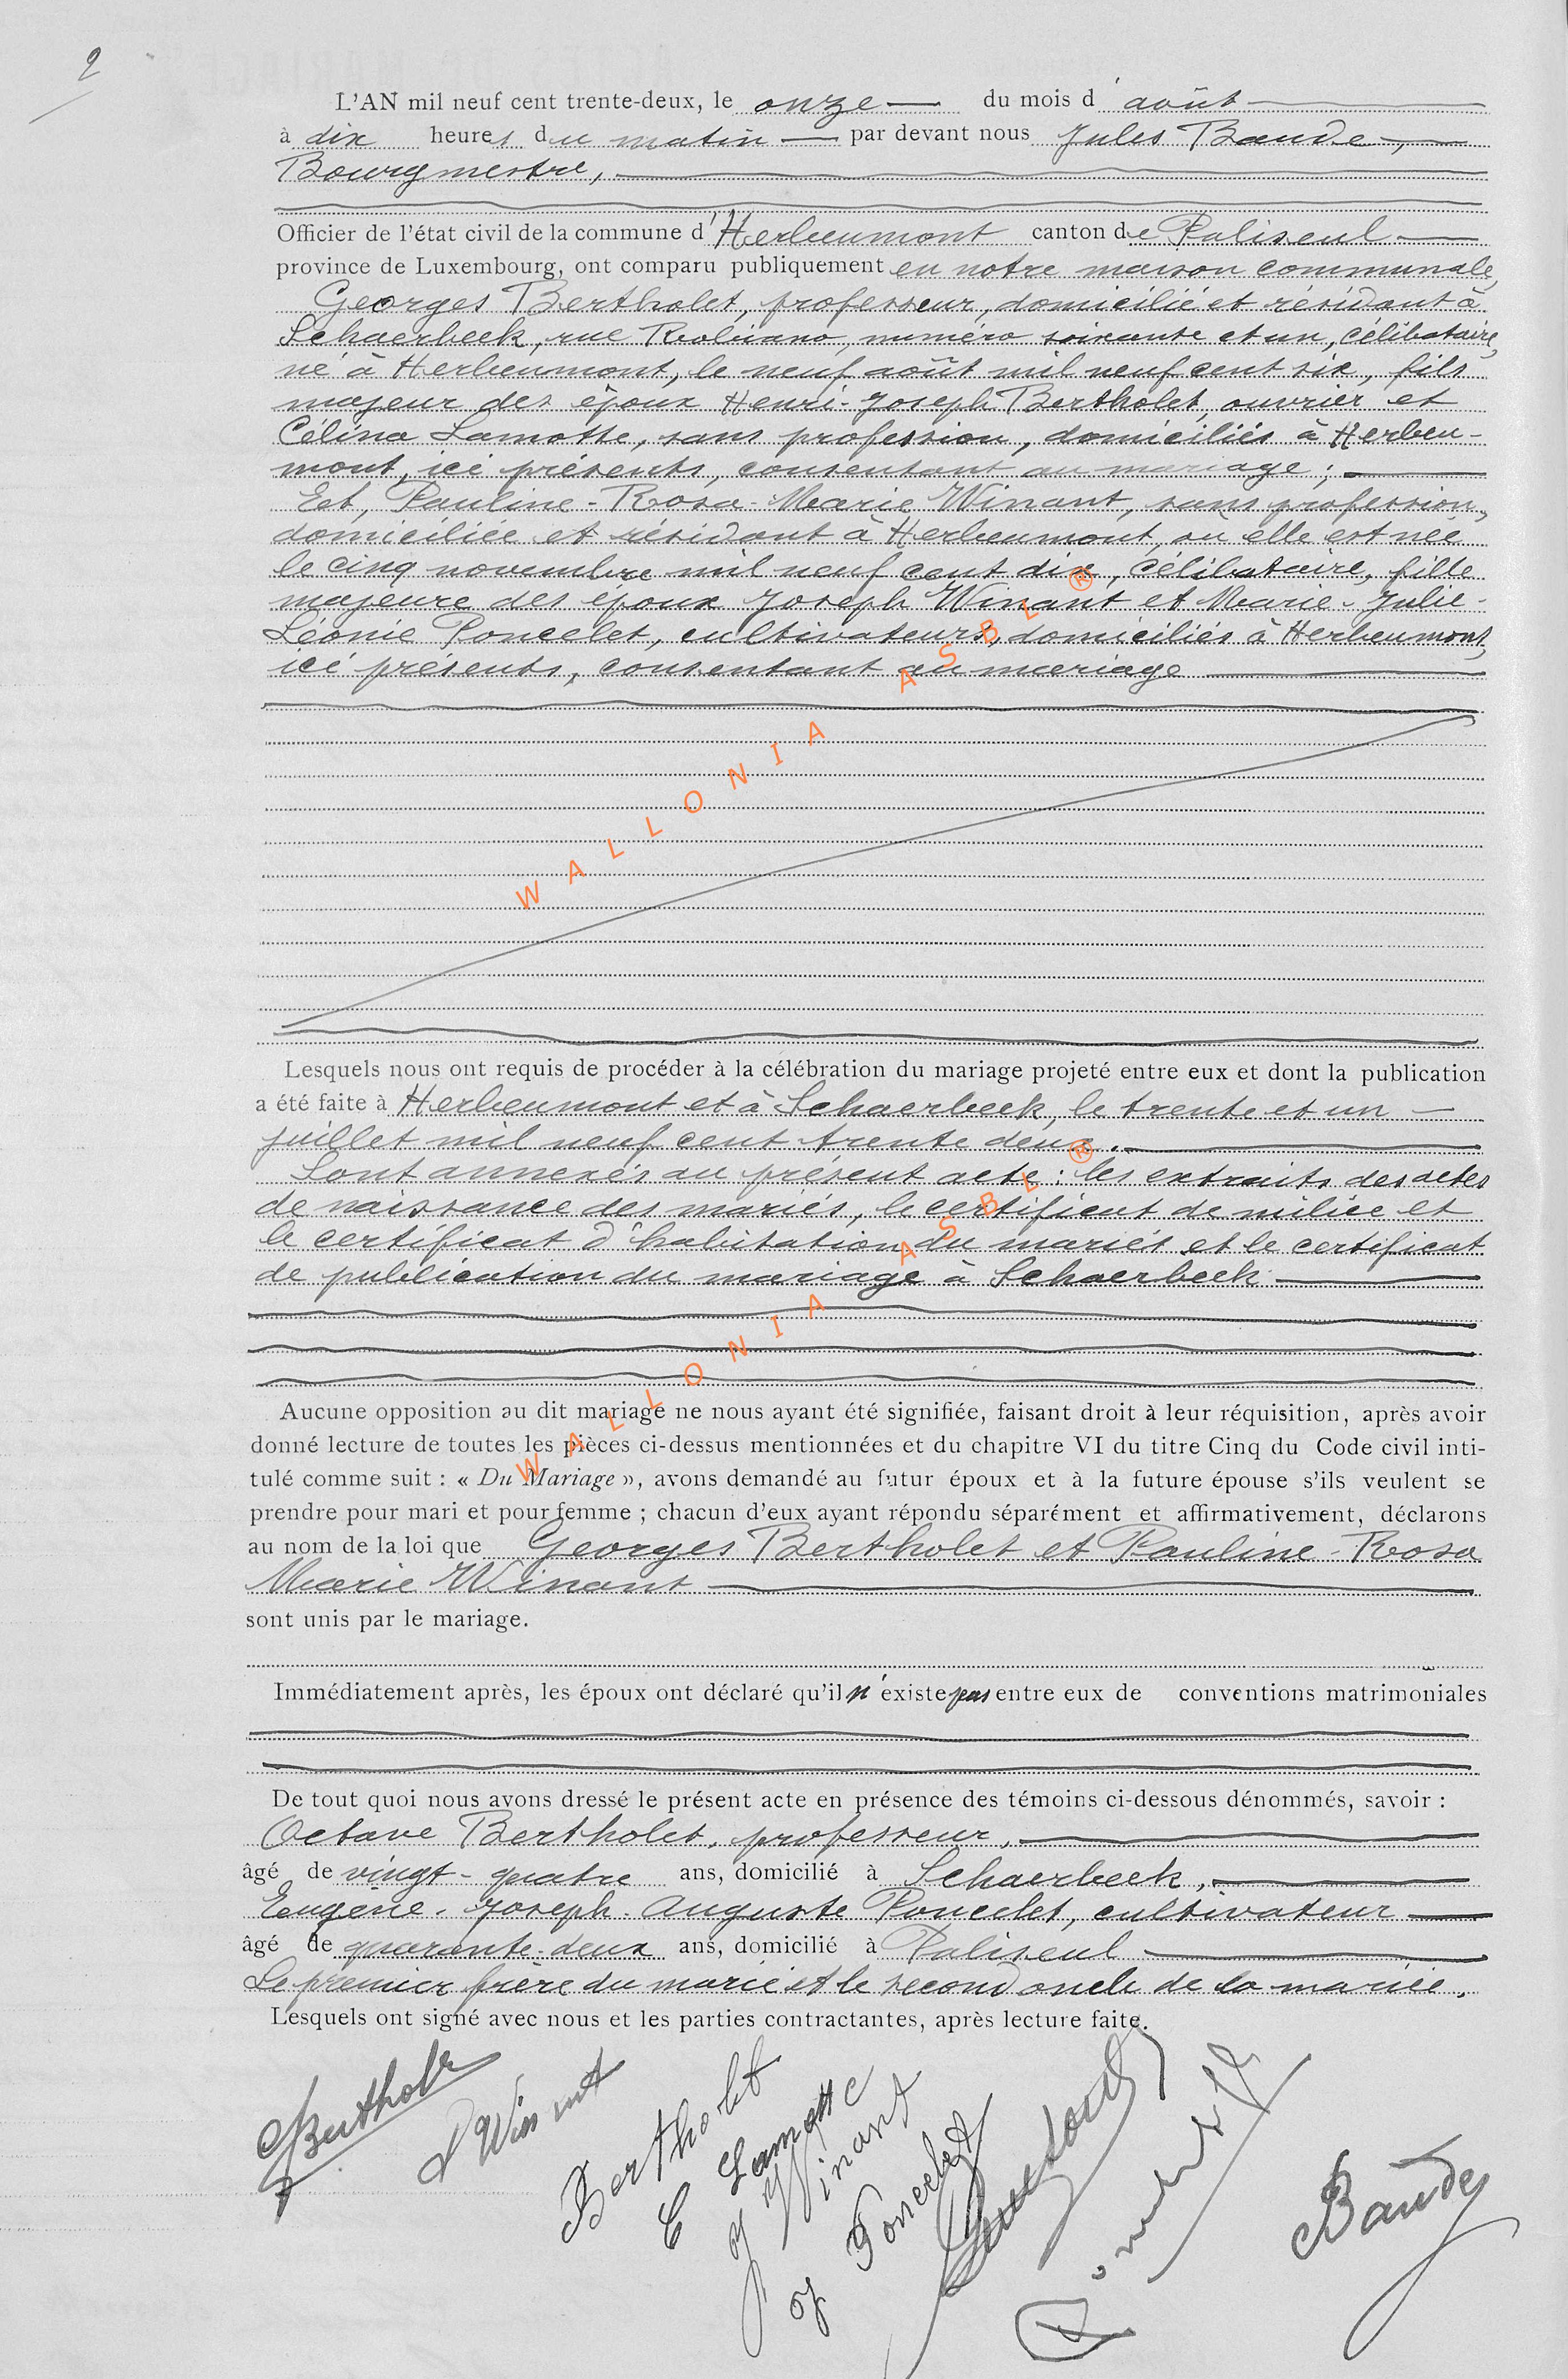 2
L'AN mil neuf cent trente-deux, le onze du mois d'août
à dix heures du matin par devant nous Jules Baude,
Bourgmestre,
Officier de l'état civil de la commune d'Herbeumont canton de Paliseul
province de Luxembourg, ont comparu publiquement en notre maison communale,
Georges Bertholet, professeur, domicilié et résidant à
Schaerbeek, rue Robiano, numéro soixante et un, célibataire,
né à Herbeumont, le neuf août mil neuf cent six, fils
majeur des époux Henri-Joseph Bertholet, ouvrier et
Célina Lamotte, sans profession, domiciliés à Herbeu-
mont, ici présents, consentant au mariage;
Et, Pauline-Rosa-Marie Winant, sans profession,
domiciliée et résidant à Herbeumont, où elle est née
le cinq novembre mil neuf cent dix, célibataire, fille
majeure des époux Joseph Winant et Marie-Julie-
Léonie Poncelet, cultivateurs, domiciliés à Herbeumont,
ici présents, consentant au mariage
WALLONIA ASBL ®
Lesquels nous ont requis de procéder à la célébration du mariage projeté entre eux et dont la publication
a été faite à Herbeumont et à Schaerbeek, le trente et un
juillet mil neuf cent trente deux.
Sont annexés au présent acte : les extraits des actes
de naissance des mariés, le certificat de milice et
le certificat d'habitation du mariés et le certificat
de publication du mariage à Schaerbeek
WALLONIA ASBL ®
Aucune opposition au dit mariage ne nous ayant été signifiée, faisant droit à leur réquisition, après avoir
donné lecture de toutes les pièces ci-dessus mentionnées et du chapitre VI du titre Cinq du Code civil inti-
tulé comme suit : « Du Mariage », avons demandé au futur époux et à la future épouse s'ils veulent se
prendre pour mari et pour femme ; chacun d'eux ayant répondu séparément et affirmativement, déclarons
au nom de la loi que Georges Bertholet et Pauline-Rosa
Marie Winant
sont unis par le mariage.
Immédiatement après, les époux ont déclaré qu'il n'existe pas entre eux de conventions matrimoniales
De tout quoi nous avons dressé le présent acte en présence des témoins ci-dessous dénommés, savoir :
Octave Bertholet, professeur,
âgé de vingt-quatre ans, domicilié à Schaerbeek,
Eugène-Joseph-Auguste Poncelet, cultivateur
âgé de quarante-deux ans, domicilié à Paliseul
Le premier frère du marié et le second oncle de la mariée.
Lesquels ont signé avec nous et les parties contractantes, après lecture faite.
Bertholet
P Winant
Bertholet
C Lamotte
J Winant
J Poncelet
Baude